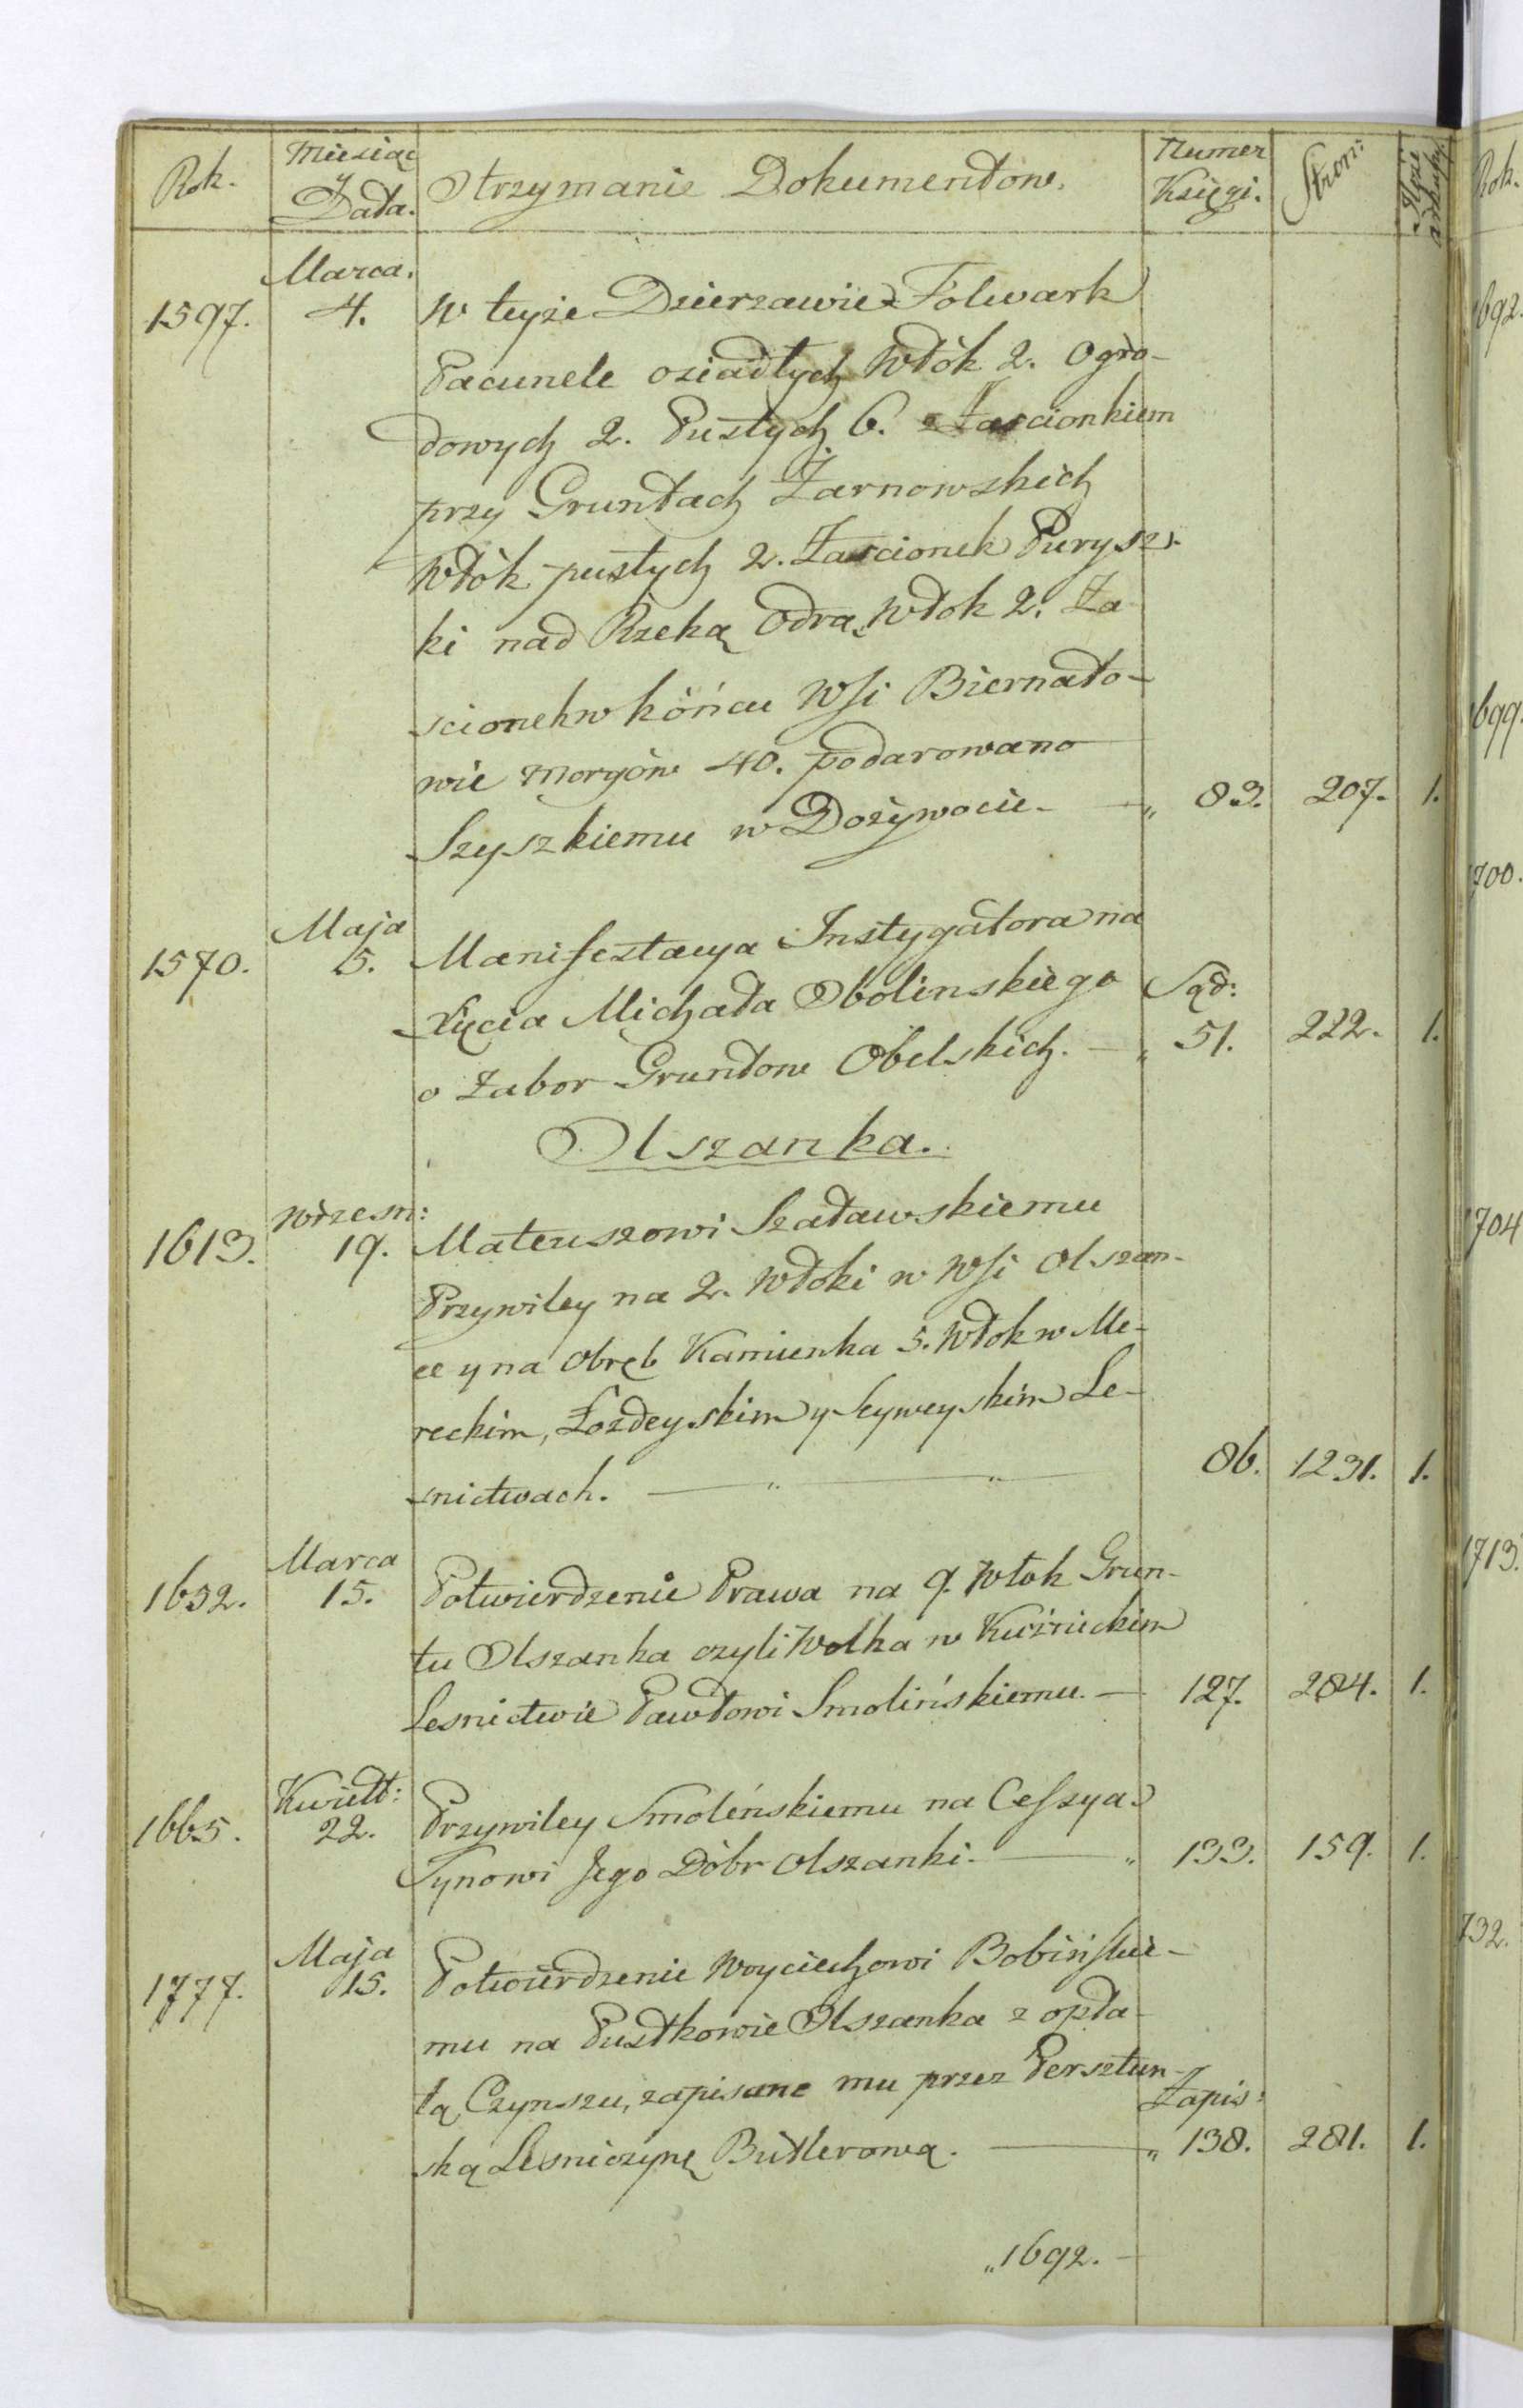 Rok. Miesiąc y Data. Otrzymanie Dokumentow. Numer Księgi. Stron:
Marca.
1597. 4. W teyże Dzierzawie Folwark
Pacunele osiadłych Włók 2. Ogro-
dowych 2. Pustych 6. z Zascionkiem
przy Gruntach Żarnowskich
Włók pustych 2. Zascionek Purysz-
ki nad Rzeką Odrą Włok 2. Za
scionek w kóńcu Wsi Biernato-
wie Morgów 40. podarowano
Szyszkiemu w Dożywocie. — „ 83. 207. 1.
Maja
1570. 5. Manifestacya Instygatora na
Xięcia Michała Obolinskiego Sąd:
o Zabor Gruntow Obelskich. — „ 51. 222. 1.
Olszanka.
Wrzesn:
1613. 19. Mateuszowi Szaławskiemu
Przywiley na 2. Włoki w Wsi Olszan-
ce y na Obręb Kamienka 5. Włok w Me-
reckim, Łozdeyskim y Seyweyskim Le-
snictwach. — „ — „ — 86. 1231. 1.
Marca
1632. 15. Potwierdzenie Prawa na 9. Włok Grun-
tu Olszanka czyli Wolka w Kuźnickim
Lesnictwie Pawłowi Smolińskiemu. — 127. 284. 1.
Kwiet:
1665. 22. Przywiley Smoleńskiemu na Cessya
Synowi Jego Dóbr Olszanki. — „ 133. 159. 1.
Maja
1777. 15. Potwierdzenie Woyciechowi Bobińskie-
mu na Pustkowie Olszanka z opła-
tą Czynszu, zapisane mu przez Persztun-
Zapis:
ską Lesniczynę Butlerową. — „ 138. 281. 1.
„1692. —
Rok.
1692.
1699.
1700.
1704
1713.
732.